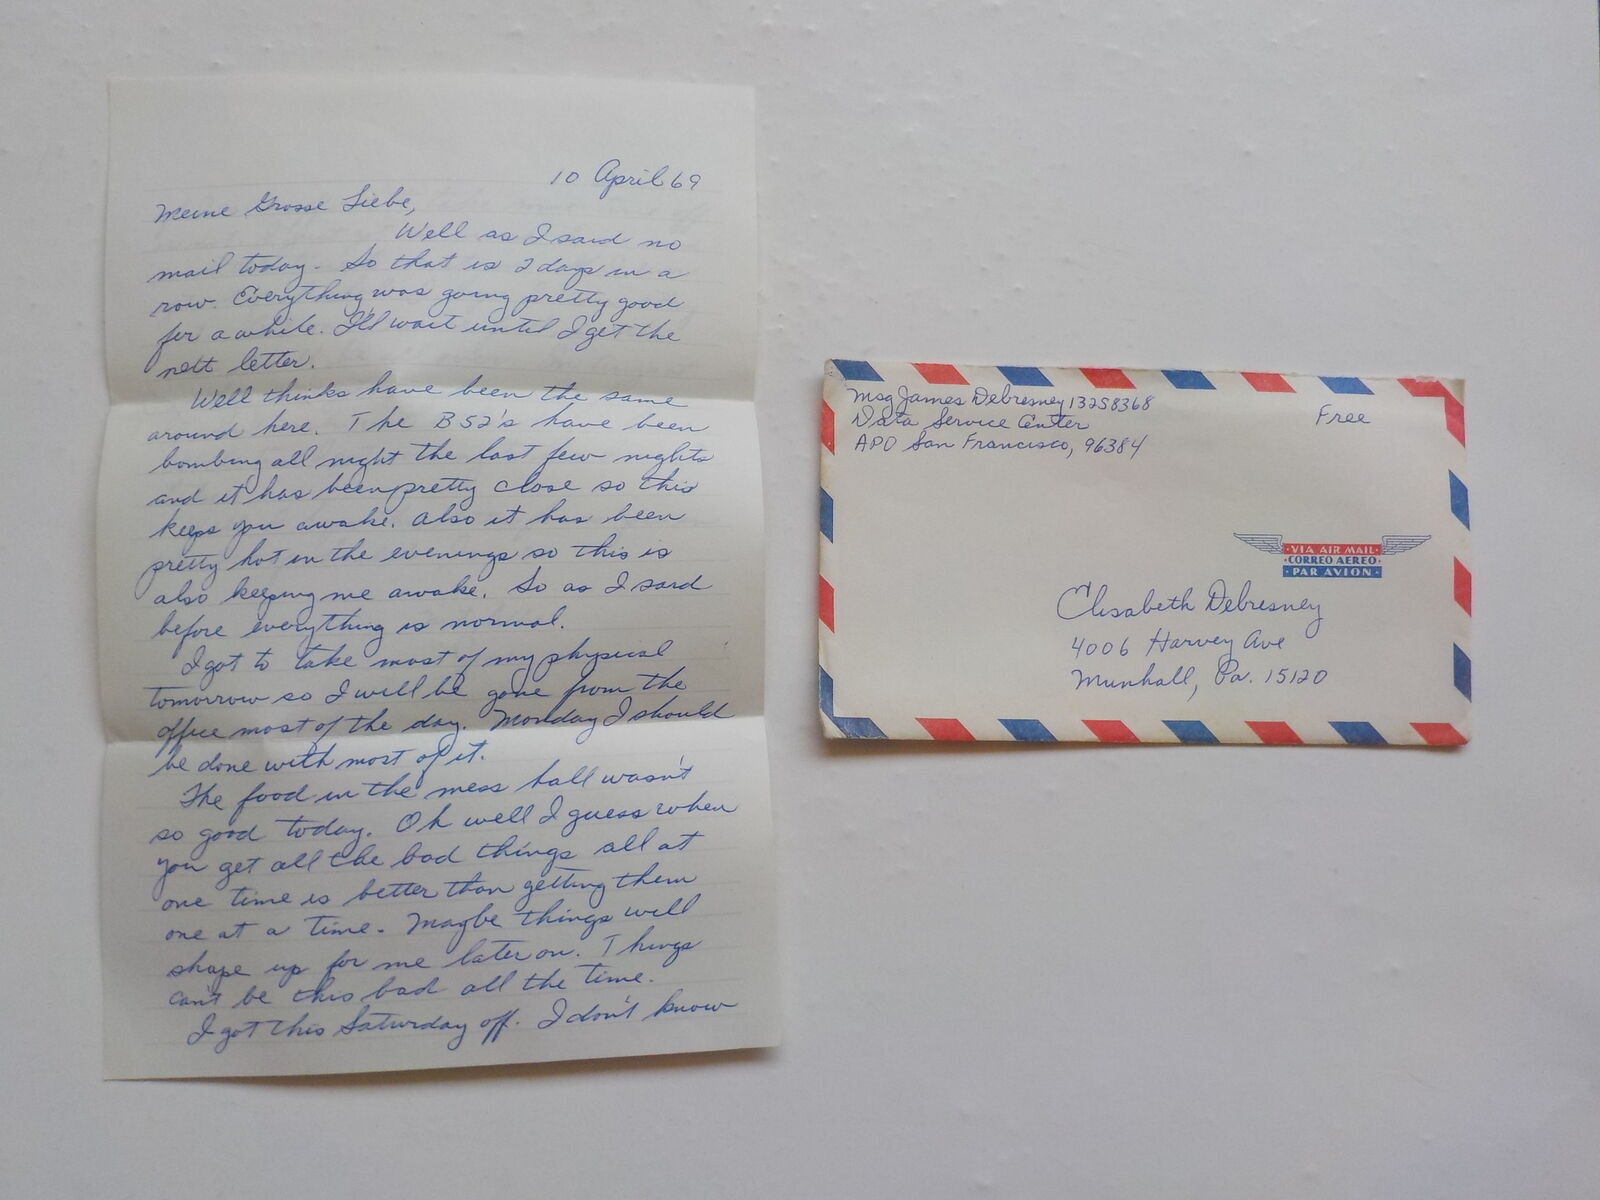 10 April 69
Meine Grosse Liebe,
Well as I said no
mail today. So that is 2 days in a
row. Everything was going pretty good
for a while. I'll wait until I get the
next letter.
Well thinks have been the same
around here. The B52's have been
bombing all night the last few nights
and it has been pretty close so this
keeps you awake. Also it has been
pretty hot in the evenings so this is
also keeping me awake. So as I said
before everything is normal.
I got to take most of my physical
tomorrow so I will be gone from the
office most of the day. Monday I should
be done with most of it.
The food in the mess hall wasn't
so good today. Oh well I guess when
you get all the bad things all at
one time is better than getting them
one at a time. Maybe things will
shape up for me later on. Things
can't be this bad all the time.
I got this Saturday off. I don't know
Msg James Debresney 13258368
Data Service Center
APO San Francisco, 96384
Free
VIA AIR MAIL
CORREO AEREO
PAR AVION
Elisabeth Debresney
4006 Harvey Ave
Munhall, Pa. 15120